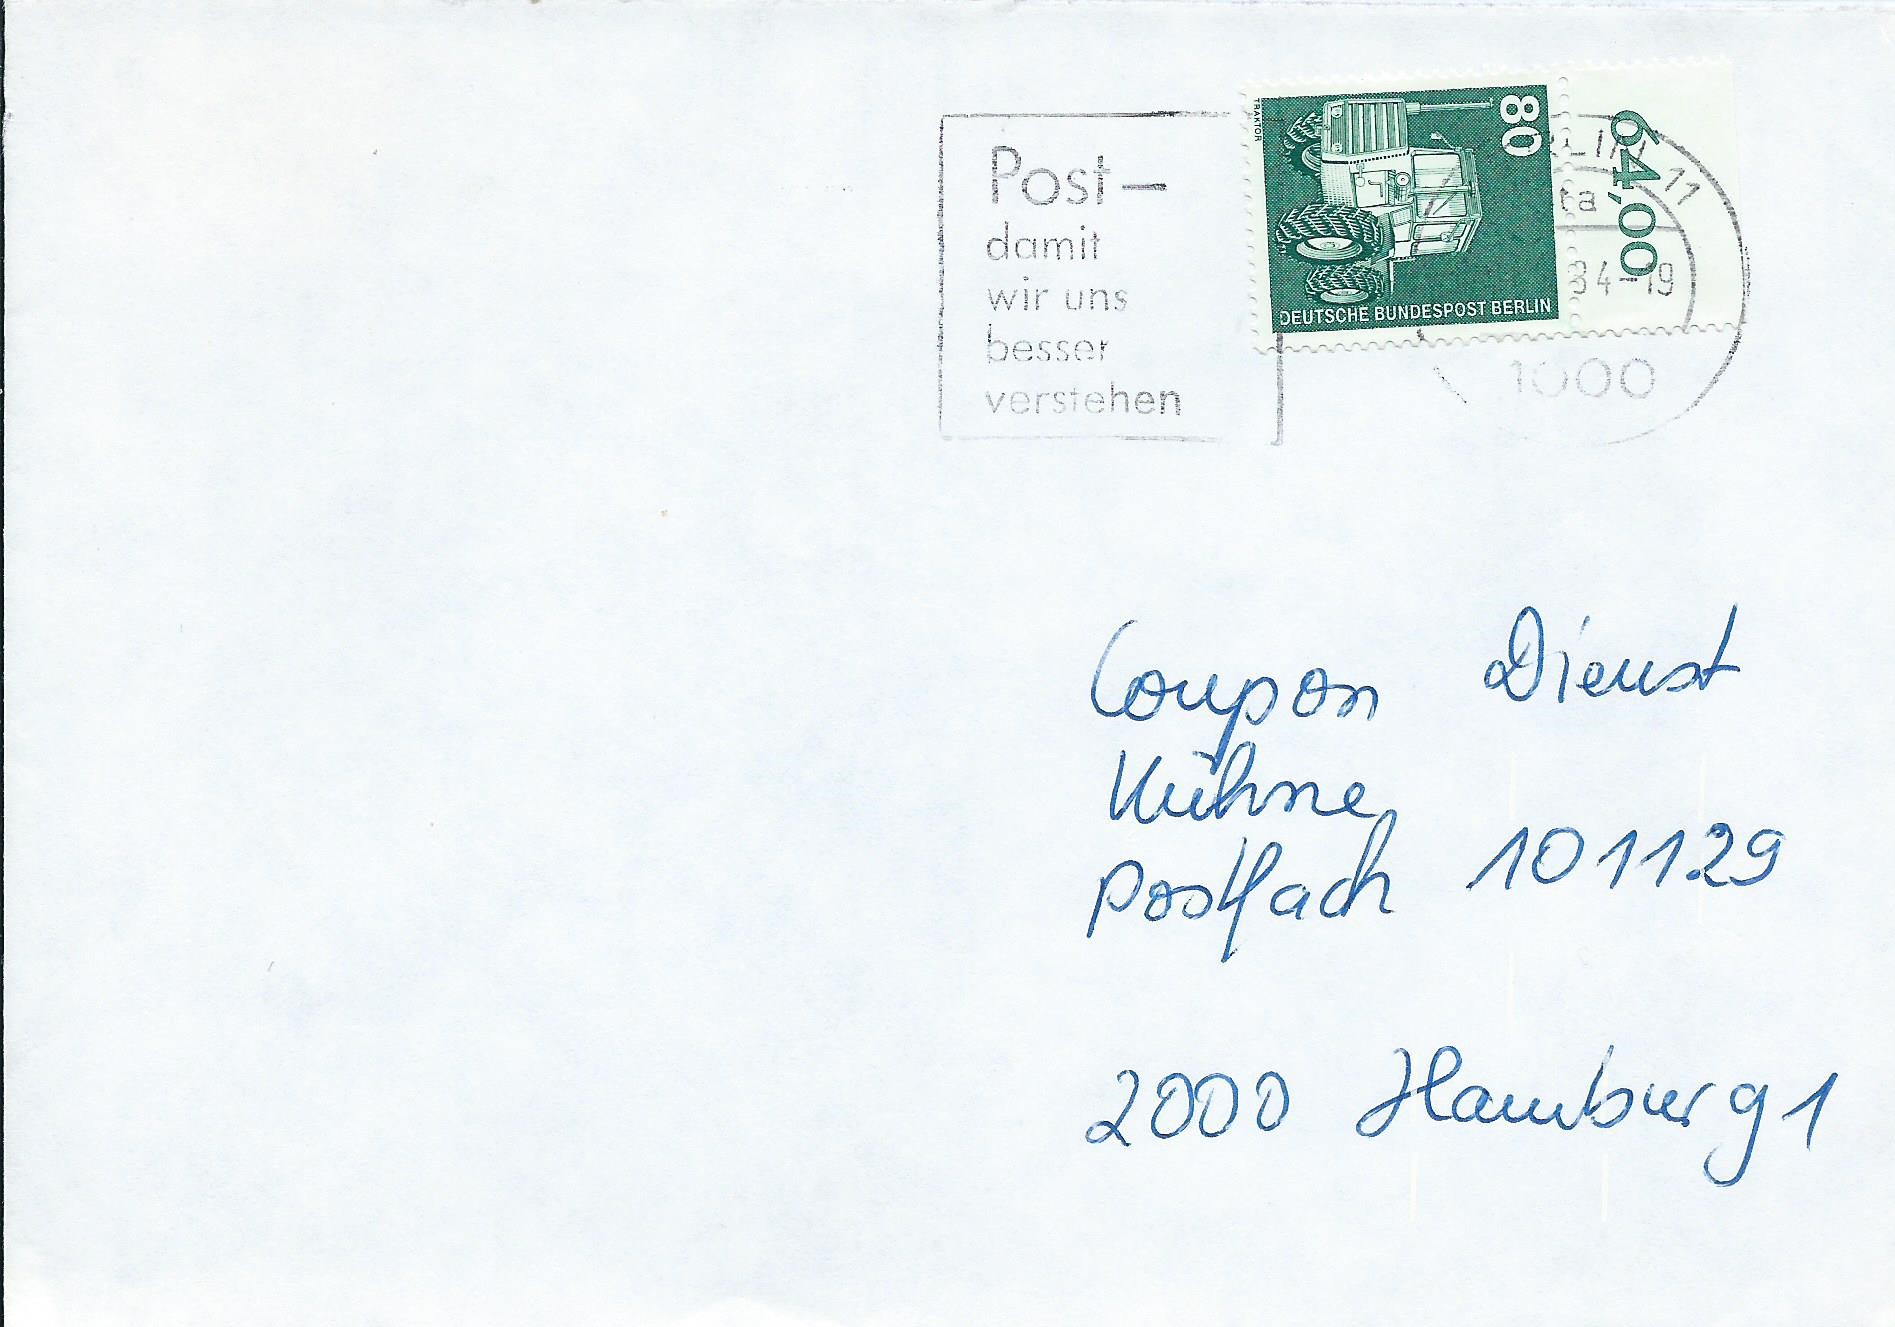 Post –
damit
wir uns
besser
verstehen
TRAKTOR
80
DEUTSCHE BUNDESPOST BERLIN
64,00
11
ta
84-19
1000
Coupon Dienst
Kühne
Postfach 101129
2000 Hamburg 1